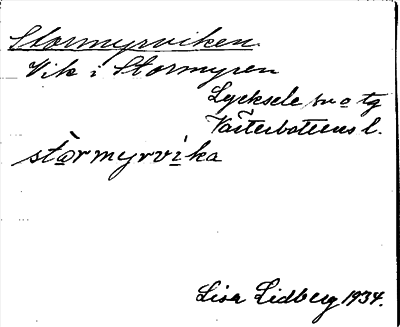 Stormyrviken.
Vik i Stormyren
Lycksele sn o tg
Västerbottens l.
stòrmyrvika
Lisa Lidberg 1934.